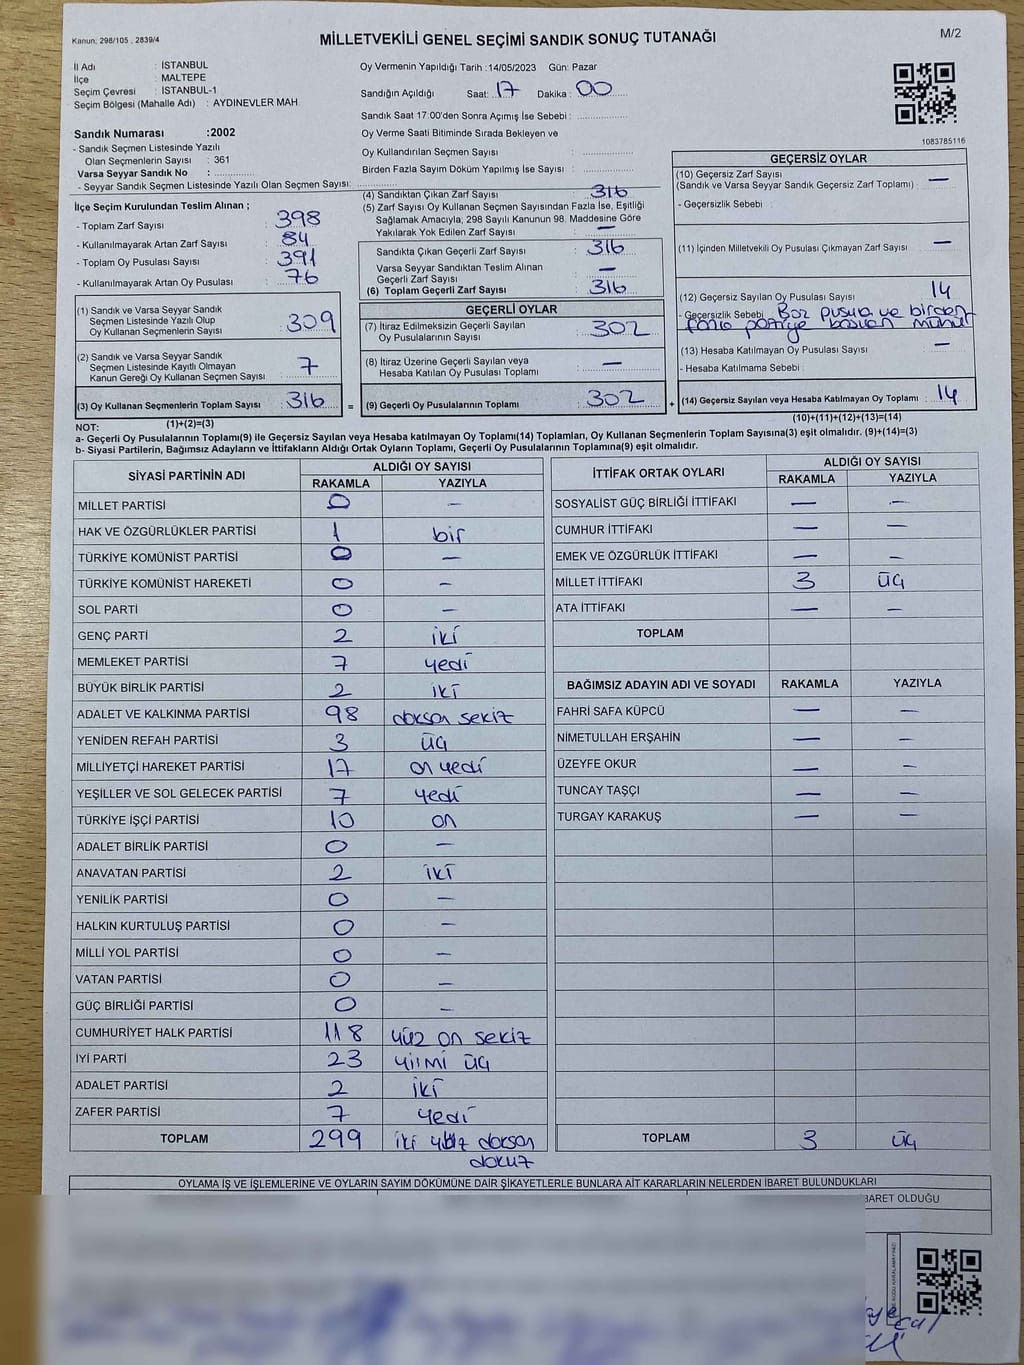 Kanun: 298/105 , 2839/4
MİLLETVEKİLİ GENEL SEÇİMİ SANDIK SONUÇ TUTANAĞI
M/2
İl Adı : İSTANBUL
İlçe : MALTEPE
Seçim Çevresi : İSTANBUL-1
Seçim Bölgesi (Mahalle Adı) : AYDINEVLER MAH.
Sandık Numarası :2002
- Sandık Seçmen Listesinde Yazılı
Olan Seçmenlerin Sayısı : 361
Varsa Seyyar Sandık No :
- Seyyar Sandık Seçmen Listesinde Yazılı Olan Seçmen Sayısı:
Oy Vermenin Yapıldığı Tarih :14/05/2023 Gün: Pazar
Sandığın Açıldığı Saat: 17 Dakika : 00
Sandık Saat 17:00'den Sonra Açımış İse Sebebi :
Oy Verme Saati Bitiminde Sırada Bekleyen ve
Oy Kullandırılan Seçmen Sayısı :
Birden Fazla Sayım Döküm Yapılmış İse Sayısı :
1083785116
İlçe Seçim Kurulundan Teslim Alınan ;
- Toplam Zarf Sayısı : 398
- Kullanılmayarak Artan Zarf Sayısı : 84
- Toplam Oy Pusulası Sayısı : 391
- Kullanılmayarak Artan Oy Pusulası : 76
(1) Sandık ve Varsa Seyyar Sandık
Seçmen Listesinde Yazılı Olup
Oy Kullanan Seçmenlerin Sayısı : 309
(2) Sandık ve Varsa Seyyar Sandık
Seçmen Listesinde Kayıtlı Olmayan
Kanun Gereği Oy Kullanan Seçmen Sayısı : 7
(3) Oy Kullanan Seçmenlerin Toplam Sayısı : 316
(1)+(2)=(3)
(4) Sandıktan Çıkan Zarf Sayısı : 316
(5) Zarf Sayısı Oy Kullanan Seçmen Sayısından Fazla İse, Eşitliği
Sağlamak Amacıyla; 298 Sayılı Kanunun 98. Maddesine Göre
Yakılarak Yok Edilen Zarf Sayısı : —
Sandıkta Çıkan Geçerli Zarf Sayısı : 316
Varsa Seyyar Sandıktan Teslim Alınan
Geçerli Zarf Sayısı : —
(6) Toplam Geçerli Zarf Sayısı : 316
GEÇERLİ OYLAR
(7) İtiraz Edilmeksizin Geçerli Sayılan
Oy Pusulalarının Sayısı : 302
(8) İtiraz Üzerine Geçerli Sayılan veya
Hesaba Katılan Oy Pusulası Toplamı : —
= (9) Geçerli Oy Pusulalarının Toplamı : 302 +
GEÇERSİZ OYLAR
(10) Geçersiz Zarf Sayısı
(Sandık ve Varsa Seyyar Sandık Geçersiz Zarf Toplamı) : —
- Geçersizlik Sebebi :
(11) İçinden Milletvekili Oy Pusulası Çıkmayan Zarf Sayısı : —
(12) Geçersiz Sayılan Oy Pusulası Sayısı : 14
- Geçersizlik Sebebi : Boz pusula ve birden
fazla partiye basılan mühür
(13) Hesaba Katılmayan Oy Pusulası Sayısı : —
- Hesaba Katılmama Sebebi :
(14) Geçersiz Sayılan veya Hesaba Katılmayan Oy Toplamı : 14
(10)+(11)+(12)+(13)=(14)
NOT:
a- Geçerli Oy Pusulalarının Toplamı(9) ile Geçersiz Sayılan veya Hesaba katılmayan Oy Toplamı(14) Toplamları, Oy Kullanan Seçmenlerin Toplam Sayısına(3) eşit olmalıdır. (9)+(14)=(3)
b- Siyasi Partilerin, Bağımsız Adayların ve İttifakların Aldığı Ortak Oyların Toplamı, Geçerli Oy Pusulalarının Toplamına(9) eşit olmalıdır.
SİYASİ PARTİNİN ADI
ALDIĞI OY SAYISI
RAKAMLA YAZIYLA
MİLLET PARTİSİ 0 —
HAK VE ÖZGÜRLÜKLER PARTİSİ 1 bir
TÜRKİYE KOMÜNİST PARTİSİ 0 —
TÜRKİYE KOMÜNİST HAREKETİ 0 —
SOL PARTİ 0 —
GENÇ PARTİ 2 iki
MEMLEKET PARTİSİ 7 yedi
BÜYÜK BİRLİK PARTİSİ 2 iki
ADALET VE KALKINMA PARTİSİ 98 doksan sekiz
YENİDEN REFAH PARTİSİ 3 üç
MİLLİYETÇİ HAREKET PARTİSİ 17 on yedi
YEŞİLLER VE SOL GELECEK PARTİSİ 7 yedi
TÜRKİYE İŞÇİ PARTİSİ 10 on
ADALET BİRLİK PARTİSİ 0 —
ANAVATAN PARTİSİ 2 iki
YENİLİK PARTİSİ 0 —
HALKIN KURTULUŞ PARTİSİ 0 —
MİLLİ YOL PARTİSİ 0 —
VATAN PARTİSİ 0 —
GÜÇ BİRLİĞİ PARTİSİ 0 —
CUMHURİYET HALK PARTİSİ 118 yüz on sekiz
İYİ PARTİ 23 yiimi üç
ADALET PARTİSİ 2 iki
ZAFER PARTİSİ 7 yedi
TOPLAM 299 iki yüz doksan
dokuz
İTTİFAK ORTAK OYLARI
ALDIĞI OY SAYISI
RAKAMLA YAZIYLA
SOSYALİST GÜÇ BİRLİĞİ İTTİFAKI — —
CUMHUR İTTİFAKI — —
EMEK VE ÖZGÜRLÜK İTTİFAKI — —
MİLLET İTTİFAKI 3 üç
ATA İTTİFAKI — —
TOPLAM
BAĞIMSIZ ADAYIN ADI VE SOYADI RAKAMLA YAZIYLA
FAHRİ SAFA KÜPCÜ — —
NİMETULLAH ERŞAHİN — —
ÜZEYFE OKUR — —
TUNCAY TAŞÇI — —
TURGAY KARAKUŞ — —
TOPLAM 3 üç
OYLAMA İŞ VE İŞLEMLERİNE VE OYLARIN SAYIM DÖKÜMÜNE DAİR ŞİKAYETLERLE BUNLARA AİT KARARLARIN NELERDEN İBARET BULUNDUKLARI
BARET OLDUĞU